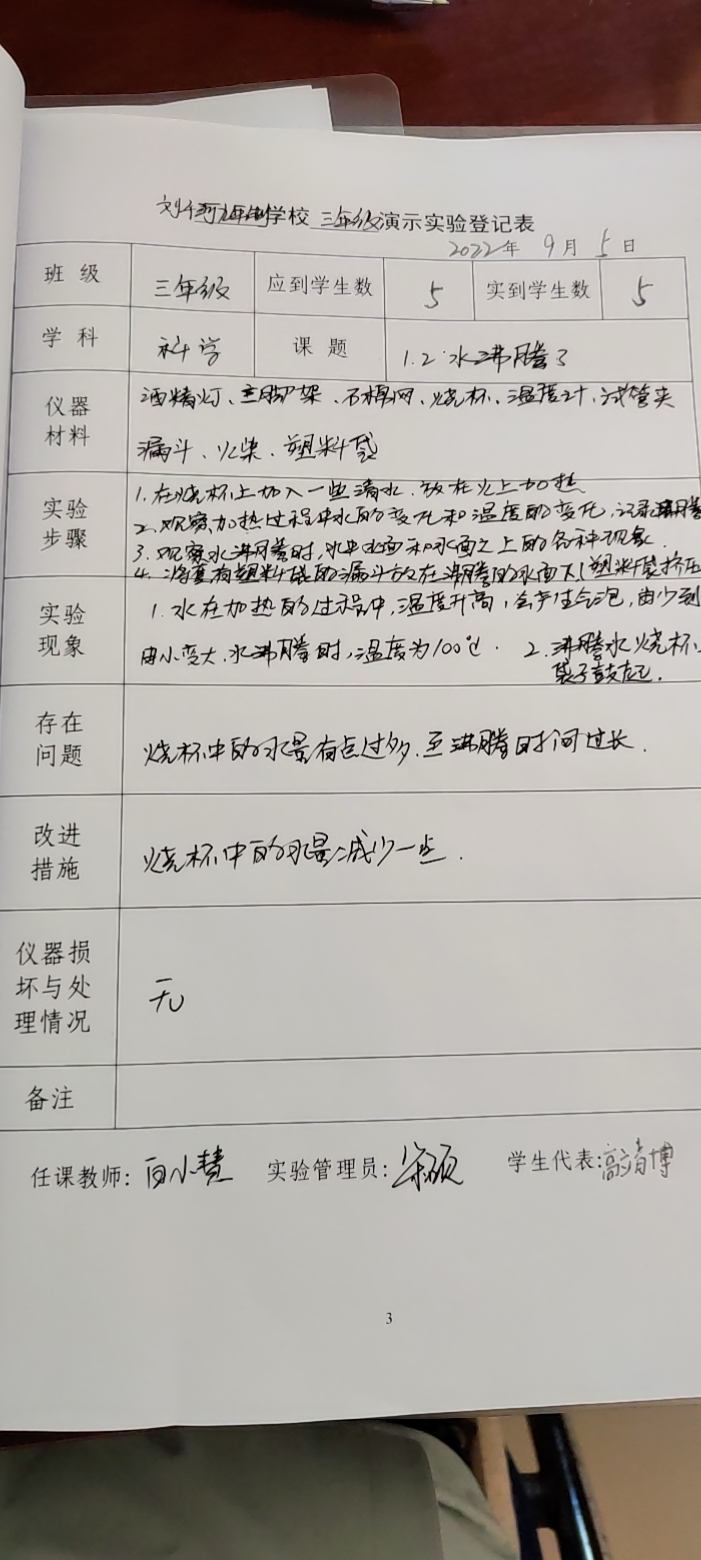 学校 三年级演示实验登记表
2022年 9月 5日
班 级 三年级 应到学生数 5 实到学生数 5
学 科 科学 课 题 1.2 水沸腾了
仪器材料 酒精灯、三脚架、石棉网、烧杯、温度计、试管夹
漏斗、火柴、塑料袋
实验步骤 1. 在烧杯上加入一些清水.放在火上加热
2. 观察加热过程中水的变化和温度的变化,记录沸腾
3. 观察水沸腾时,水里水面和水面之上的各种现象.
4. 塑料袋的漏斗放在沸腾的水面下(塑料袋挤压
实验现象 1. 水在加热的过程中,温度升高,会产生气泡,由少到
由小变大.水沸腾时,温度为100℃. 2. 沸腾水烧杯、
袋子鼓起.
存在问题 烧杯中的水量有点过多.至沸腾时间过长.
改进措施 烧杯中的水量减少一些.
仪器损坏与处理情况 无
备注
任课教师: 白小慧 实验管理员: 学生代表: 高靖博
3